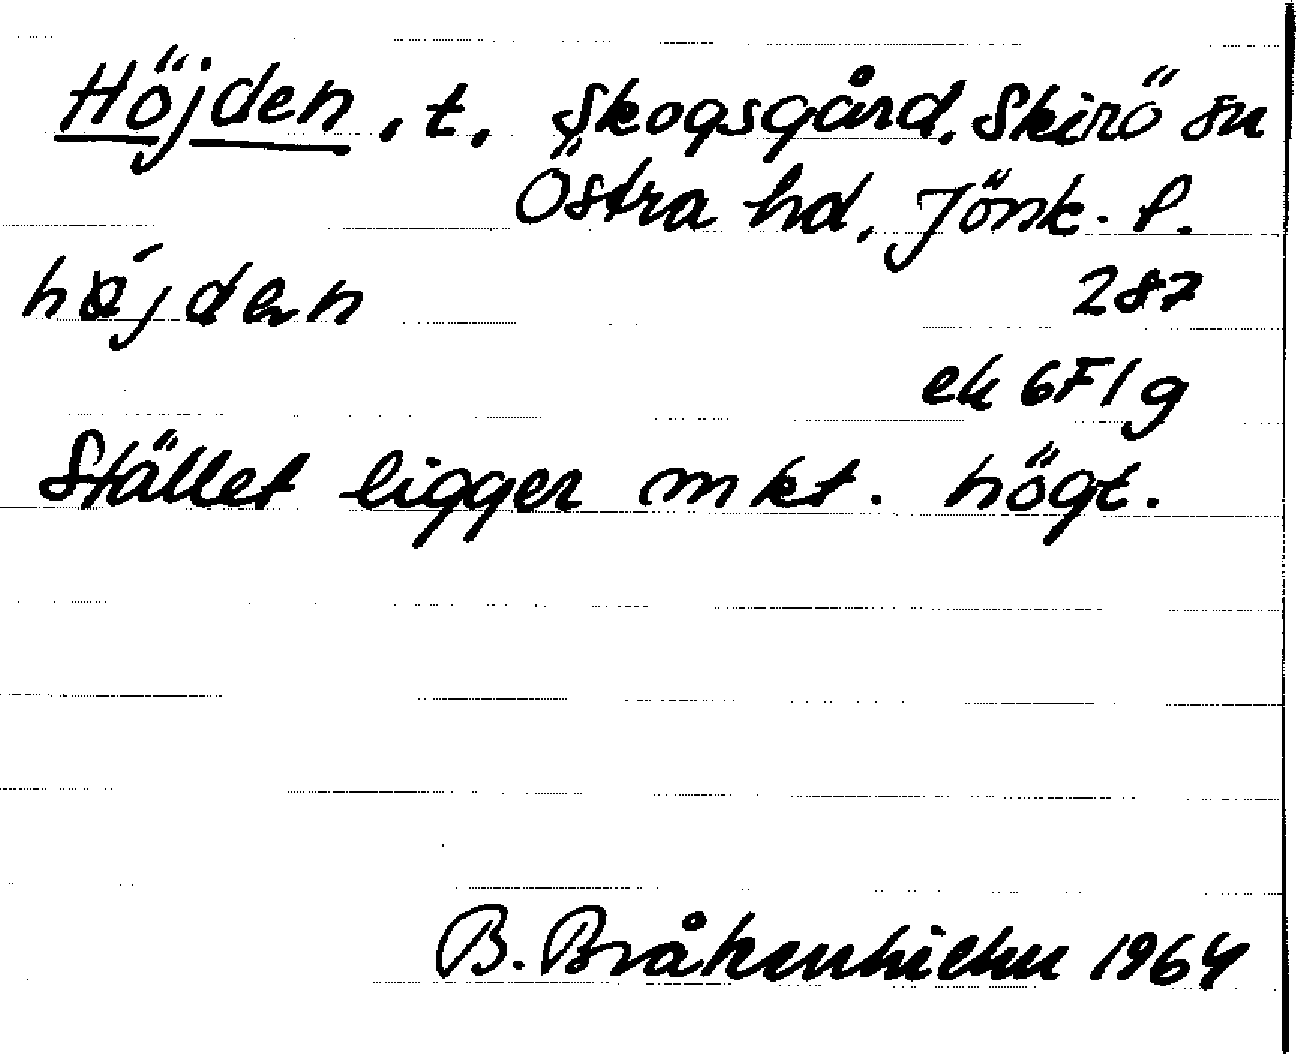 Höjden, t. Skogsgård, Skirö sn
Östra hd, Jönk. l.
högden 287
ek 6F1g
Stället ligger mkt. högt.
B. Bråkenhielm 1964